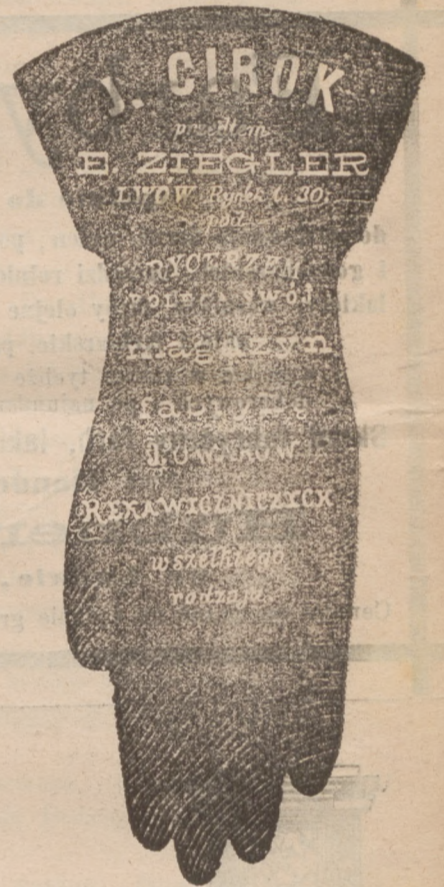 J. CIROK
przedtem
E. ZIEGLER
LWÓW Rynek l. 30.
pod
"RYCERZEM"
POLECA SWÓJ
magazyn
fabrykę
TOWARÓW
RĘKAWICZNICZYCH
wszelkiego
rodzaju.